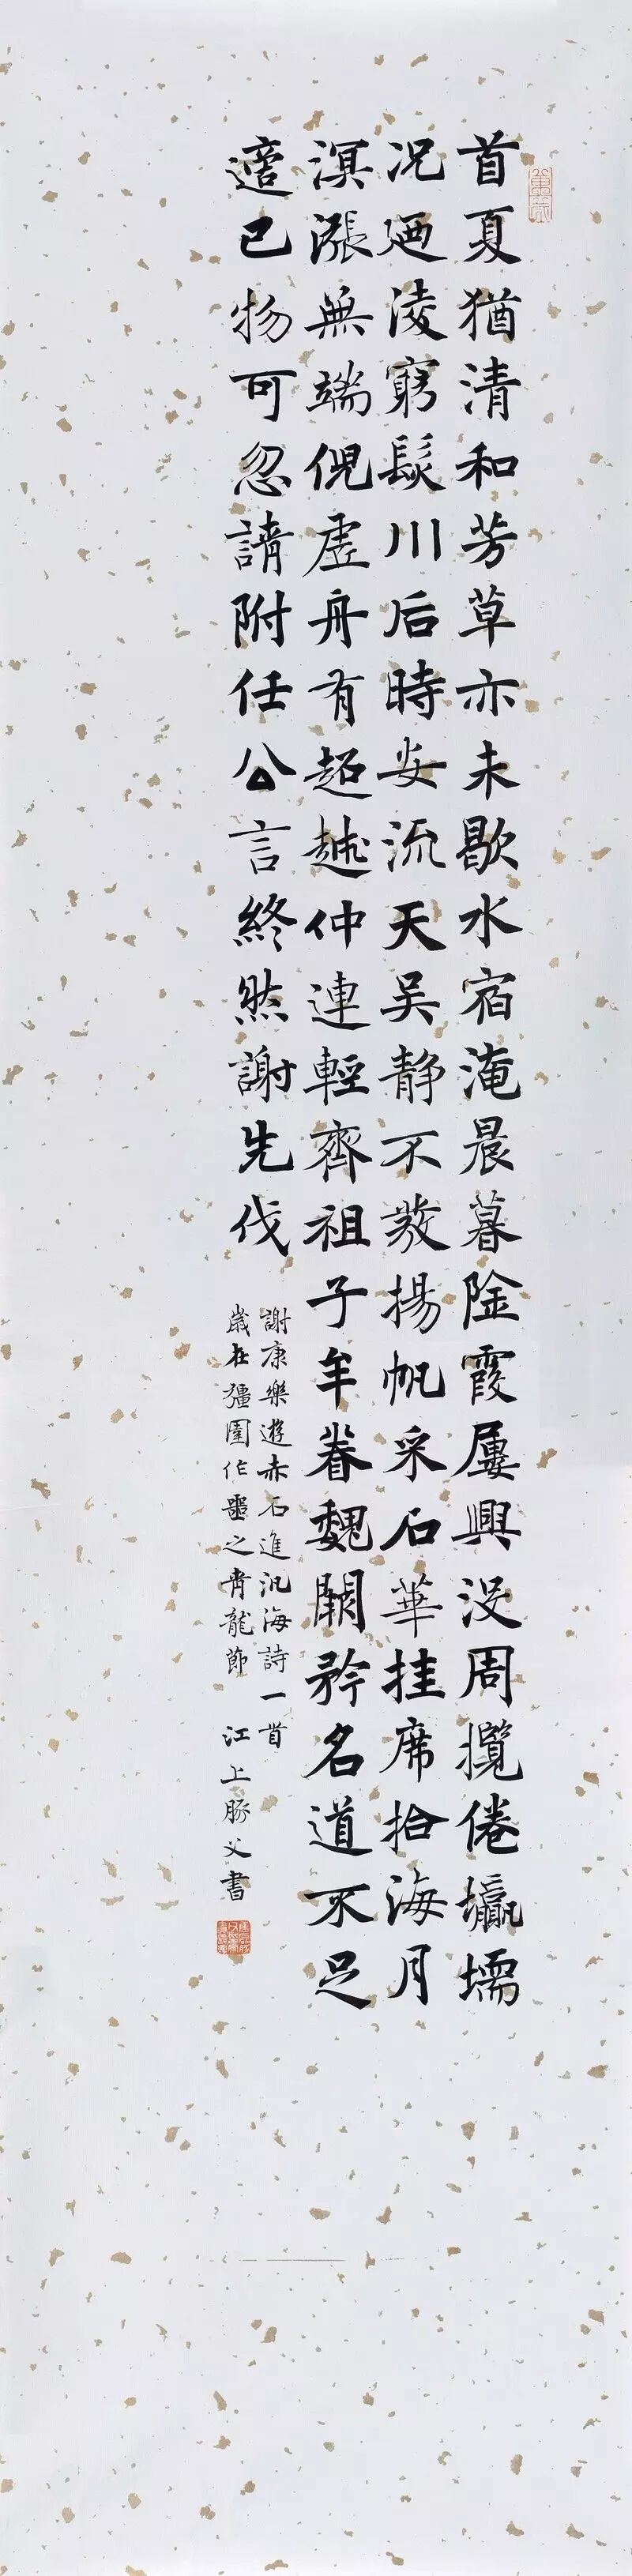 首夏猶清和芳草亦未歇水宿淹晨暮陰霞屢興没周攬倦壖壖
况迺淩窮髮川后時安流天吴静不發揚帆采石華挂席拾海月
溟漲無端倪虚舟有超越仲連輕齊祖子牟眷魏闕矜名道不足
適己物可忽請附任公言終然謝先伐
謝康樂遊赤石進汎海詩一首
歲在彊圉作噩之青龍節 江上豚父書